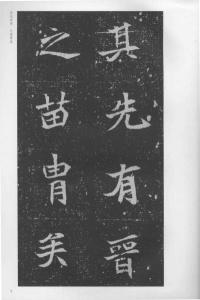 其先有晉
之苗胄矣